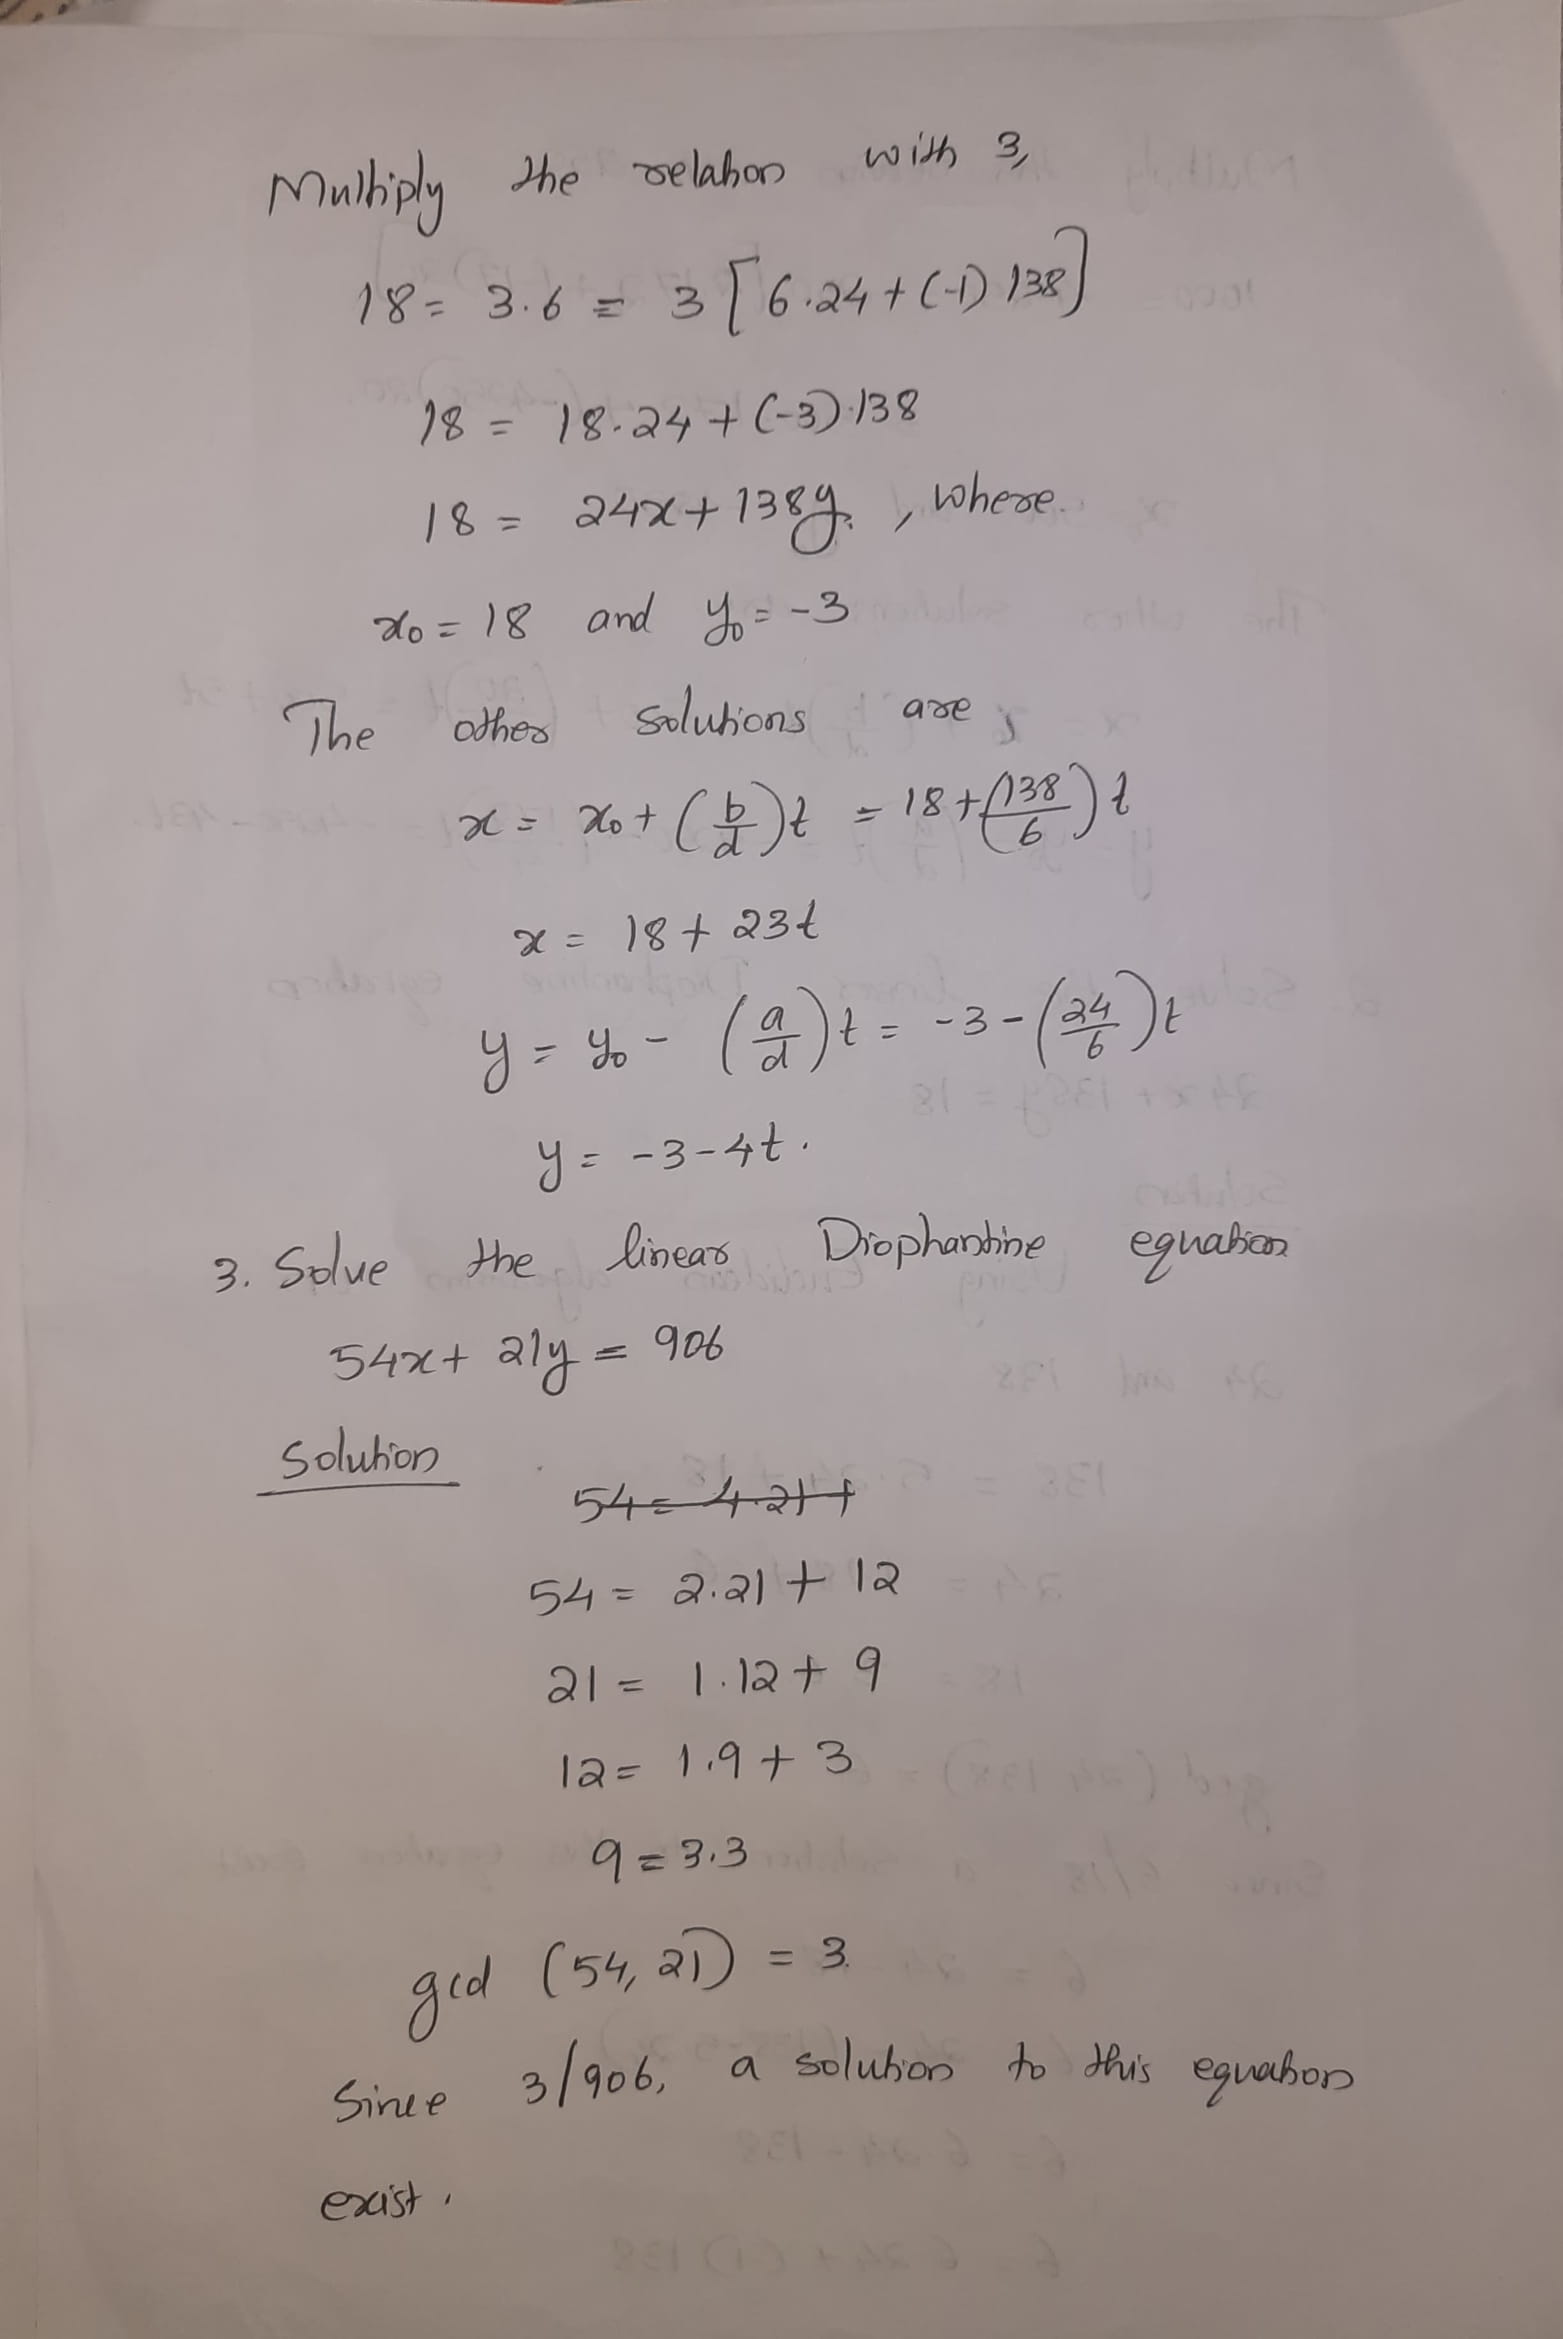 Multiply the relation with 3,
18 = 3.6 = 3 [6.24 + (-1) 138]
18 = 18.24 + (-3).138
18 = 24x + 138y, where
x₀ = 18 and y₀ = -3
The other solutions are,
x = x₀ + (b/d)t = 18 + (138/6)t
x = 18 + 23t
y = y₀ - (a/d)t = -3 - (24/6)t
y = -3 - 4t.
3. Solve the linear Diophantine equation
54x + 21y = 906
Solution
54 = 4.21 +
54 = 2.21 + 12
21 = 1.12 + 9
12 = 1.9 + 3
9 = 3.3
gcd (54, 21) = 3.
Since 3/906, a solution to this equation
exist.